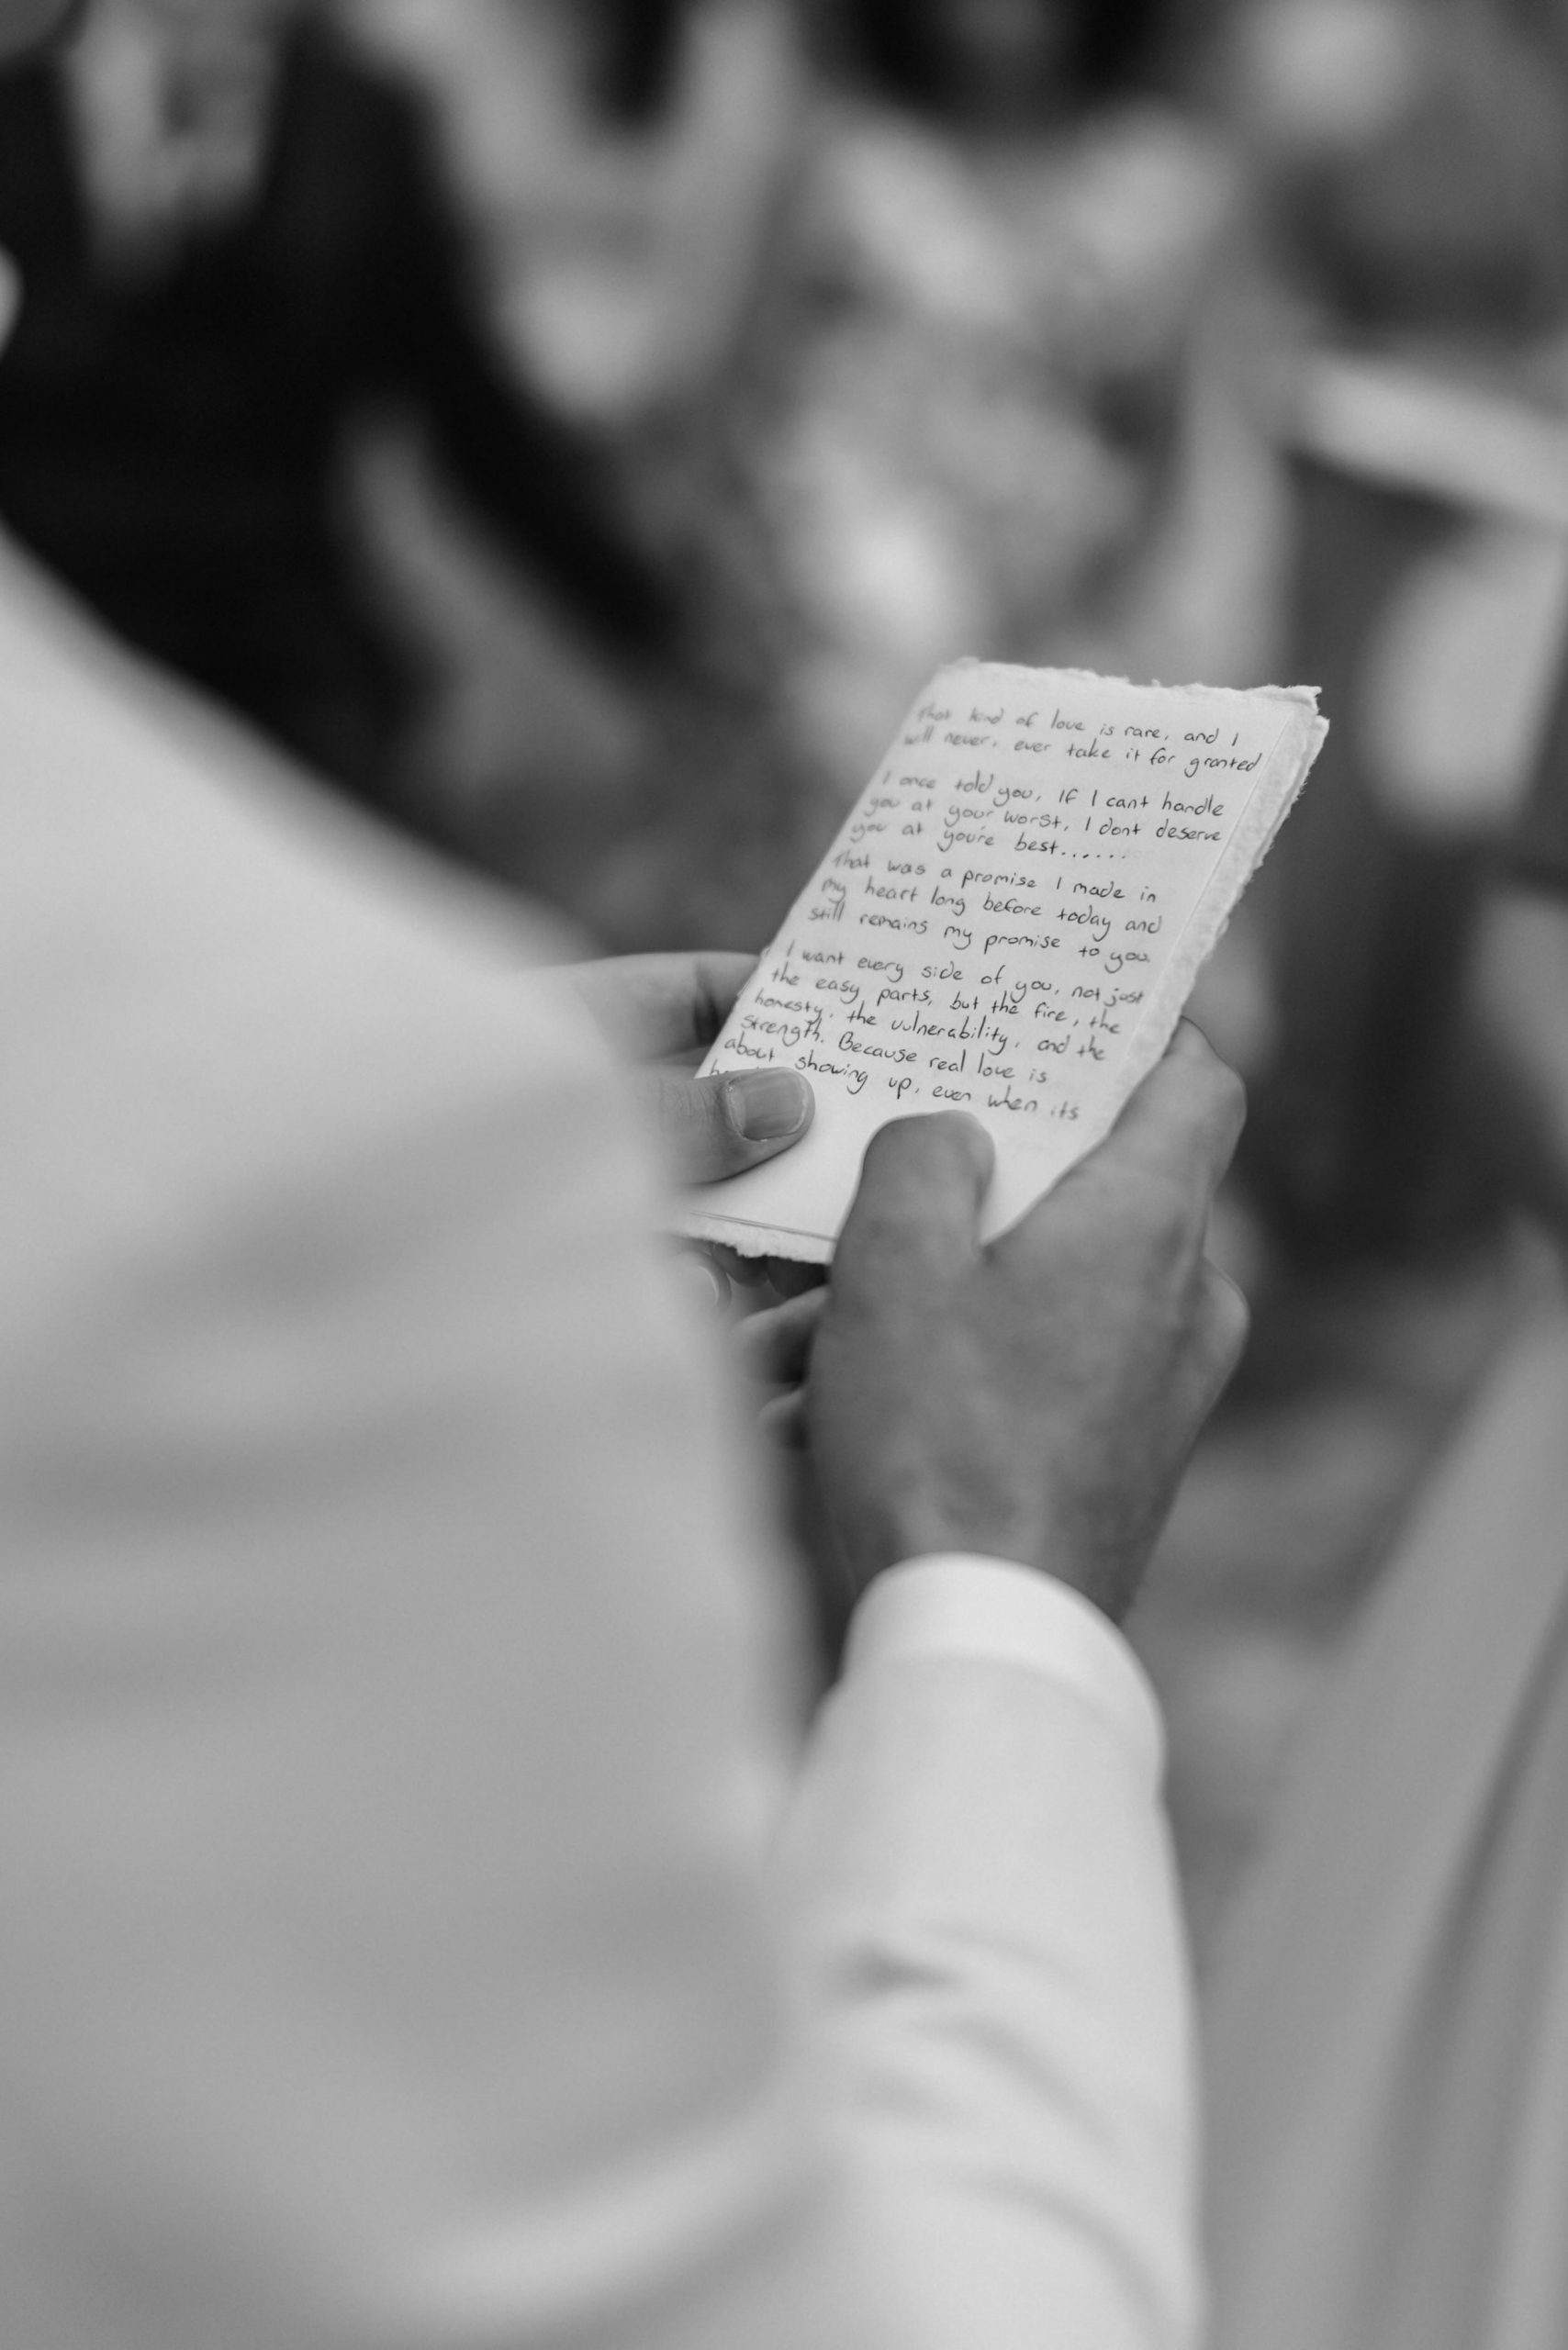 That kind of love is rare, and I
will never, ever take it for granted
I once told you, If I cant handle
you at your worst, I dont deserve
you at you're best......
That was a promise I made in
my heart long before today and
still remains my promise to you.
I want every side of you, not just
the easy parts, but the fire, the
honesty, the vulnerability, and the
strength. Because real love is
about showing up, even when its